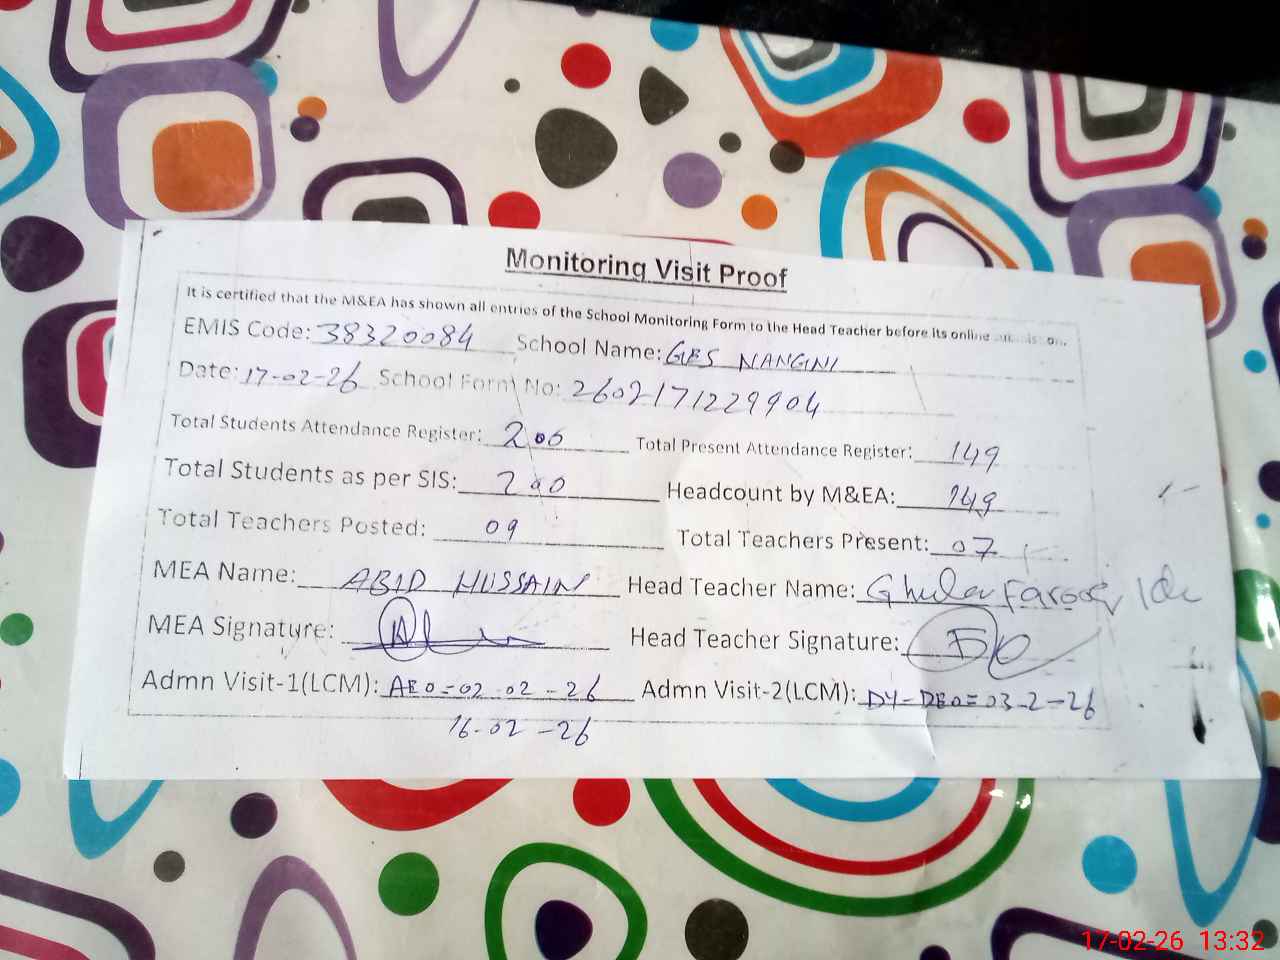 Monitoring Visit Proof
It is certified that the M&EA has shown all entries of the School Monitoring Form to the Head Teacher before its online
EMIS Code: 38320084 School Name: GES NANGINI
Date: 17-02-26 School Form No: 2602171229904
Total Students Attendance Register: 200 Total Present Attendance Register: 149
Total Students as per SIS: 200 Headcount by M&EA: 149
Total Teachers Posted: 09 Total Teachers Present: 07
MEA Name: ABID HUSSAIN Head Teacher Name: Farooq
MEA Signature: Head Teacher Signature:
Admn Visit-1(LCM): AEO=02-02-26 Admn Visit-2(LCM): DY-DEO=03-2-26
16-02-26
17-02-26 13:32